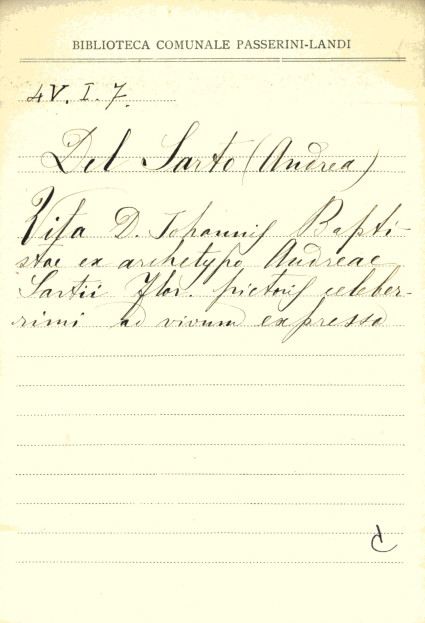 BIBLIOTECA COMUNALE PASSERINI-LANDI
4V. I. 7.
Del Sarto (Andrea)
Vita D. Johannis Bapti-
stae ex archetypo Andreae
Sartii Flor. pictoris celeber-
rimi ad vivum expressa